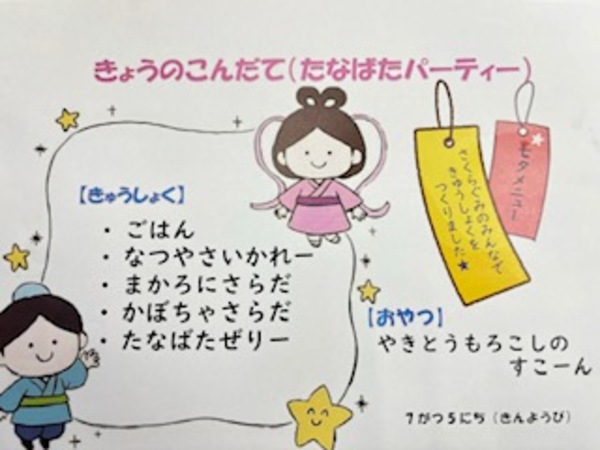 きょうのこんだて(たなばたパーティー)
【きゅうしょく】
・ごはん
・なつやさいかれー
・まかろにさらだ
・かぼちゃさらだ
・たなばたぜりー
さくらぐみのみんなで
きゅうしょくを
つくりました★
七夕メニュー
【おやつ】
やきとうもろこしの
すこーん
7がつ5にち(きんようび)